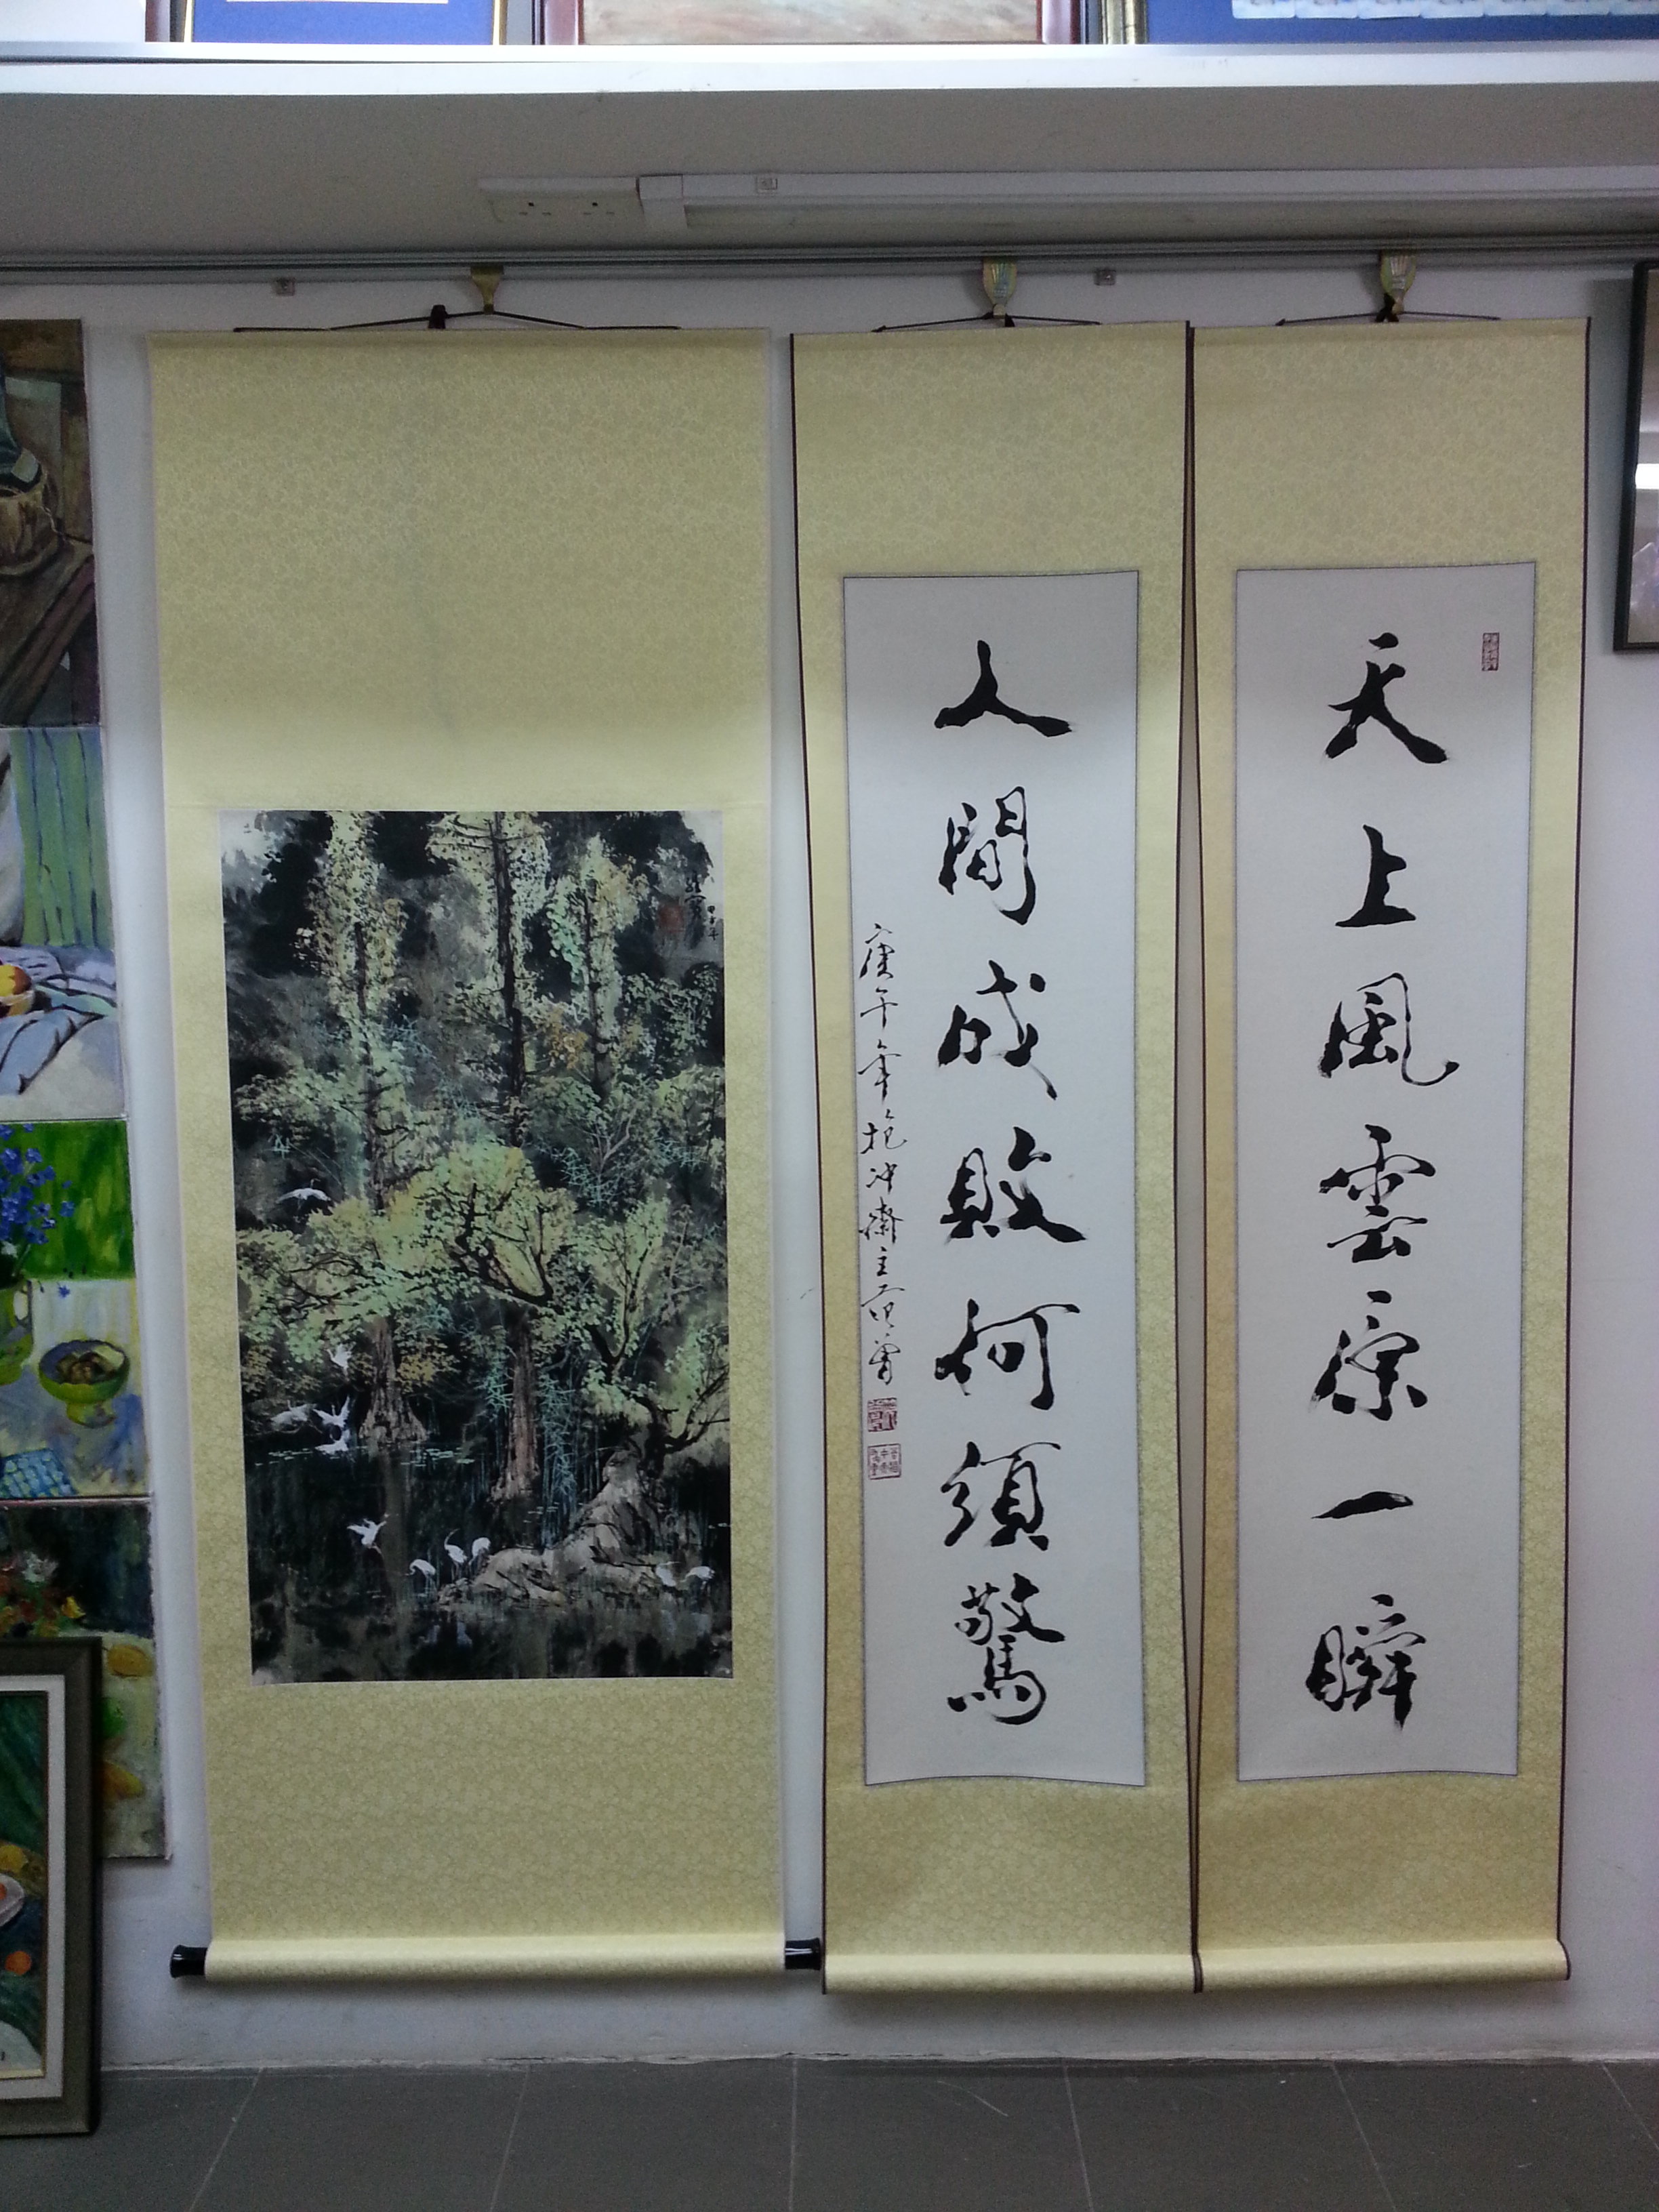 天上風雲原一瞬
人間成敗何須驚
庚午年抱冲齋主范曾